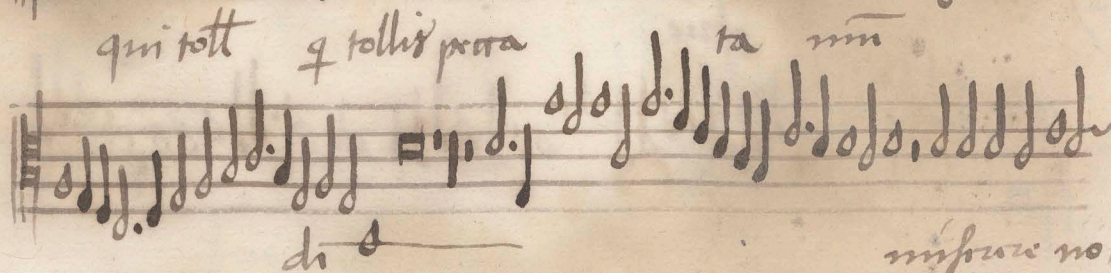 qui toll q tollis pecca ta mu͞n
di miserere no